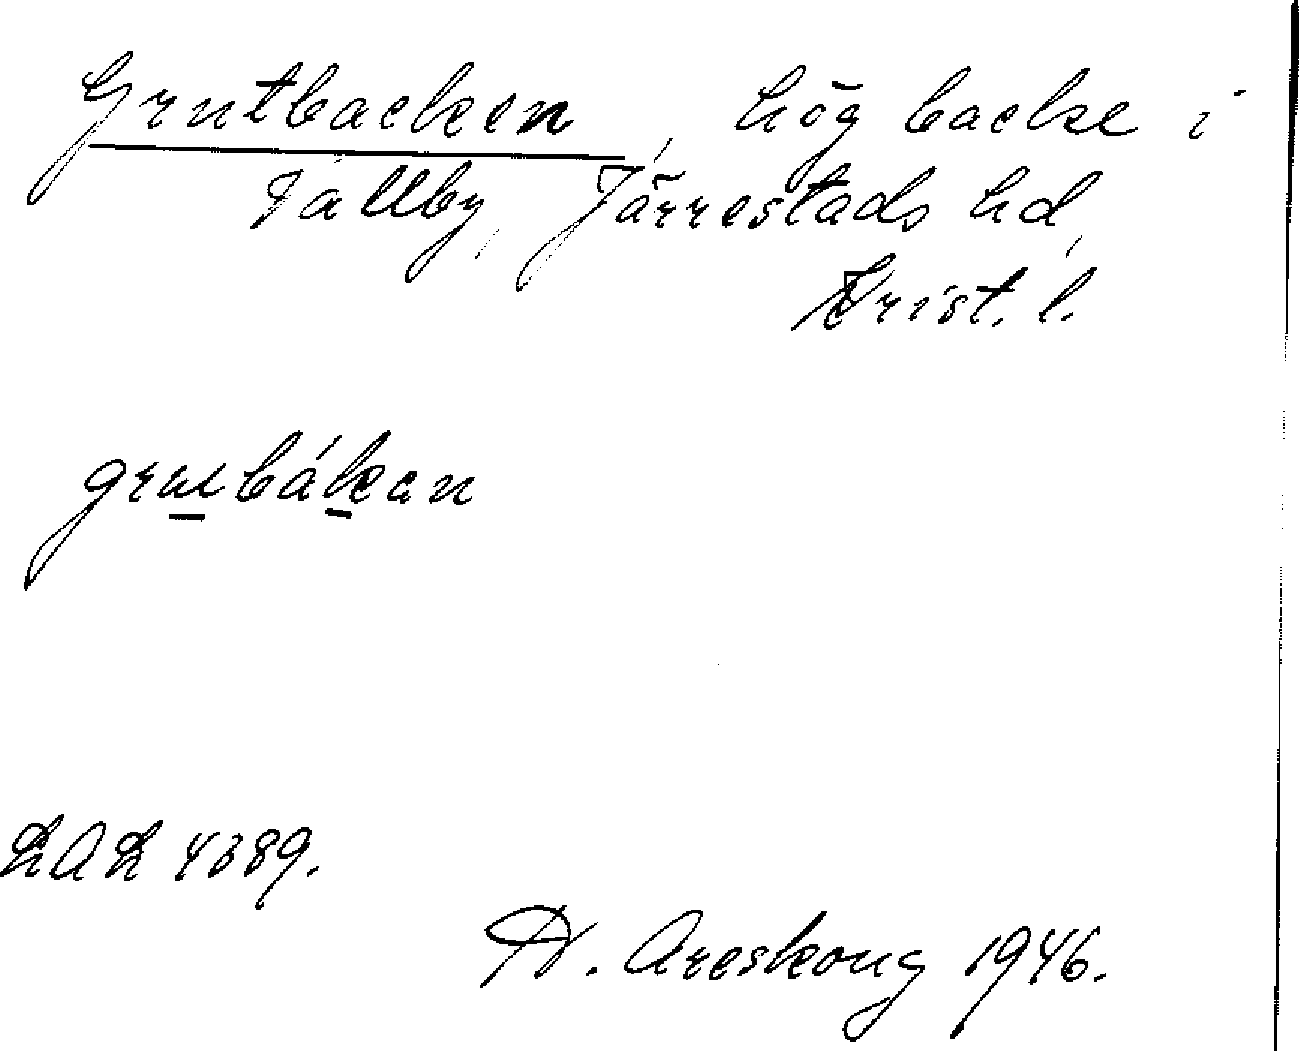 Grutbacken, hög backe i
Tåby, Järrestads hd,
Krist. l.
grubákan
LAL 4389.
W. Areskoug 1946.